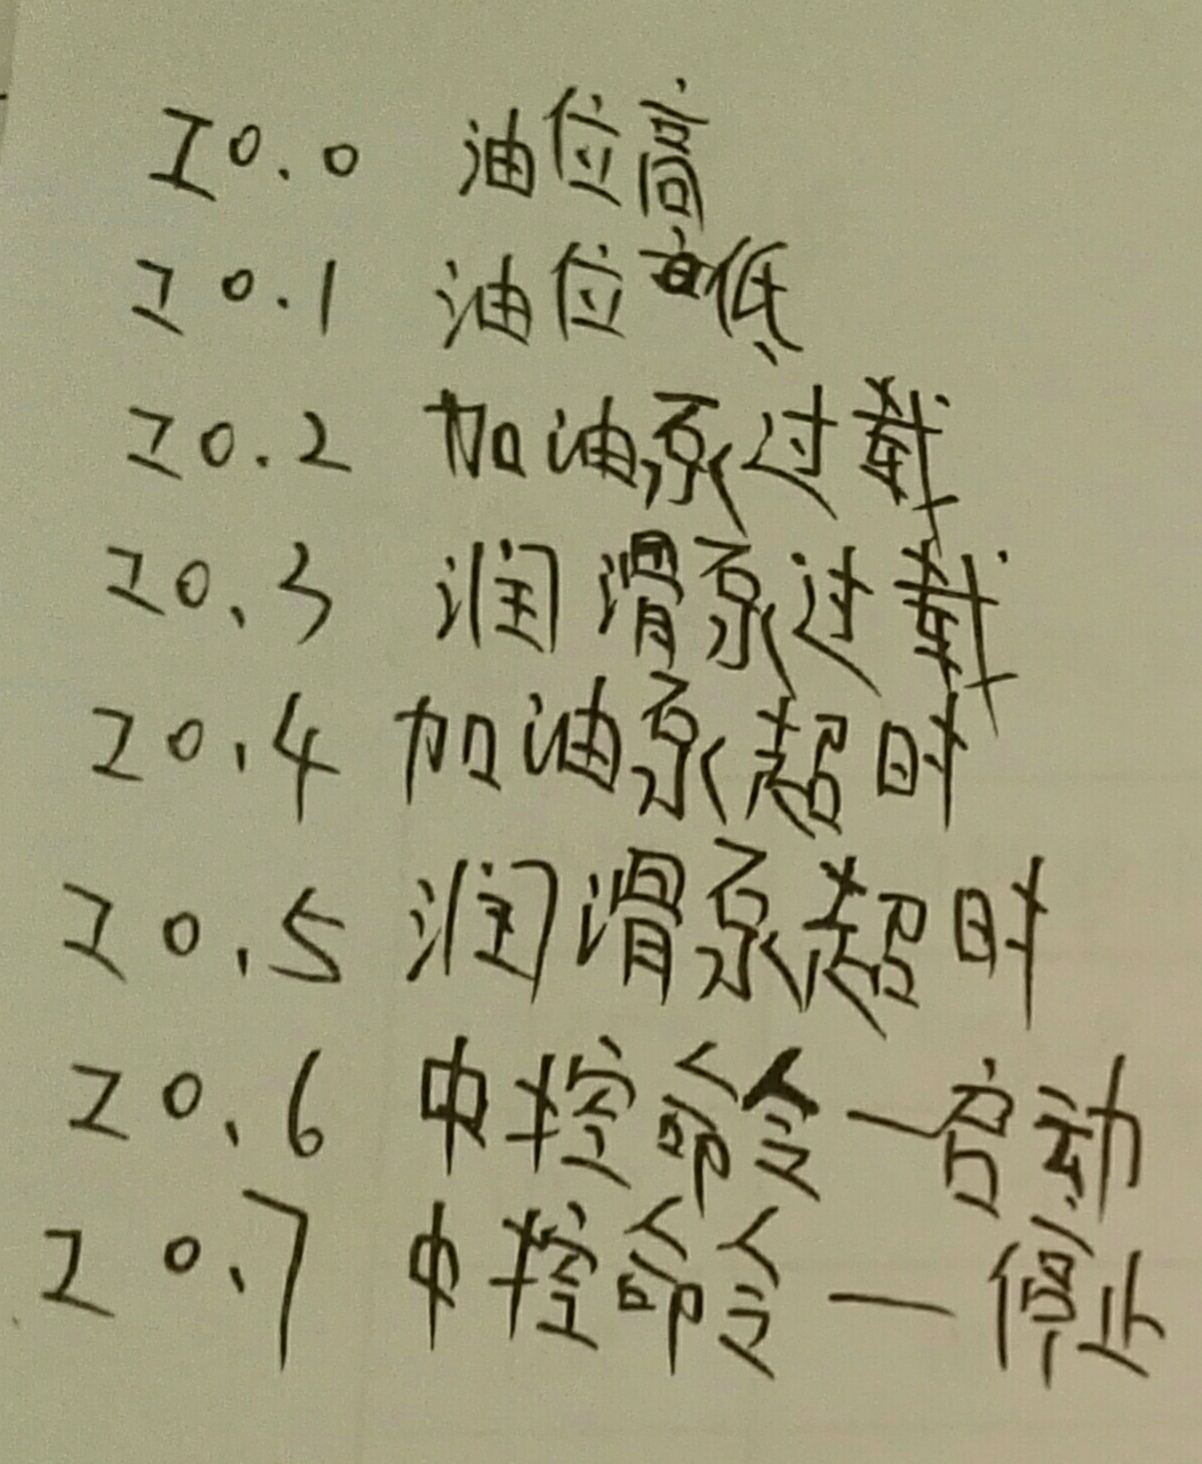 I0.0 油位高
I0.1 油位低
I0.2 加油泵过载
I0.3 润滑泵过载
I0.4 加油泵超时
I0.5 润滑泵超时
I0.6 中控命令—启动
I0.7 中控命令—停止